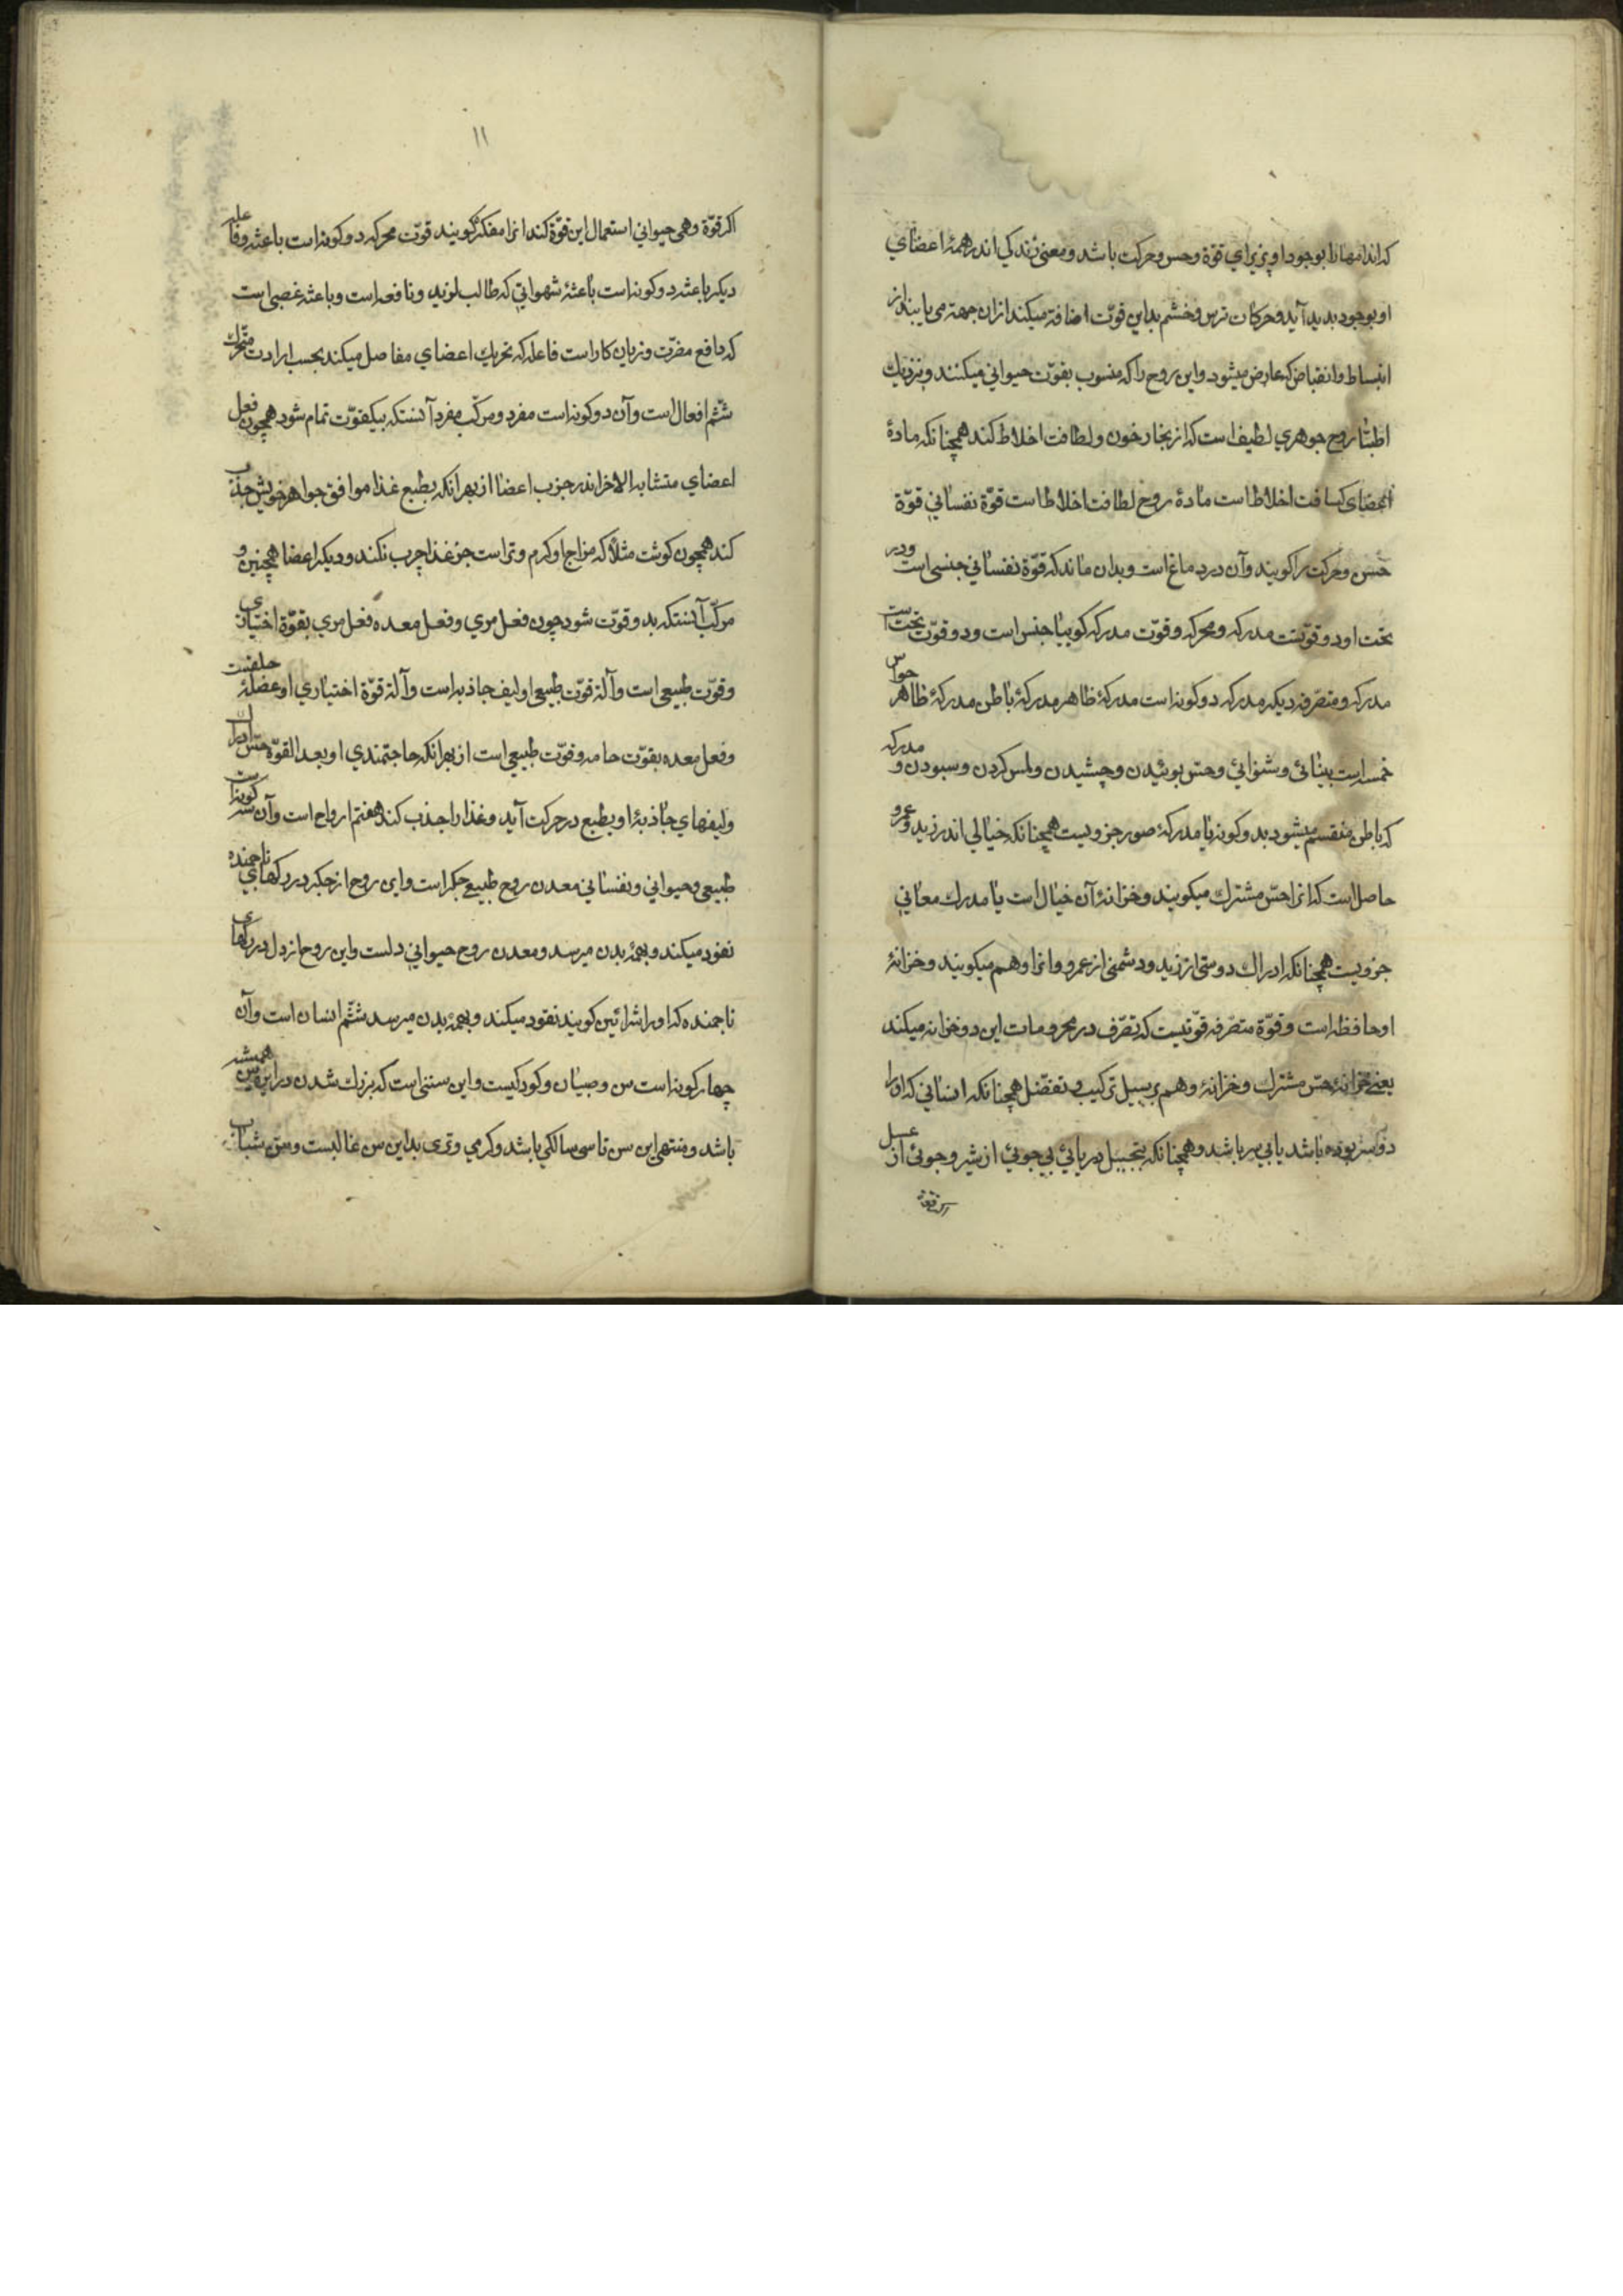 که اندامها را بوجود او پذیرای قوّة وحس وحرکت باشد ومعنی زندکی اندر همهٔ اعضای
او بوجود بدید آید وحرکات ترس وخشم بداین قوّت اضافة میکند ازان جهة می یابند از
انبساط وانقباض که عارض میشود واین روح را که منسوب بقوّت حیوانی میکنند ونزدیك
اطبّا روح جوهری لطیف است که از بخار خون ولطافت اخلاط کند همچنانکه مادهٔ
اعضای کثافت اخلاط است مادهٔ روح لطافت اخلاط است قوّة نفسانی قوّة
حس وحرکت را کویند وآن در دماغ است وبدان ماند که قوّة نفسانی جنسی است ودر
تحت او دو قوّتست مدرکه ومحرکه وقوّت مدرکه کوییا جنس است ودو قوّت تحت است
مدرکه ومتصرّفه دیکر مدرکه دو کونه است مدرکهٔ ظاهر مدرکهٔ باطن مدرکهٔ ظاهر حواس
خمسه است بینائی وشنوائی وحس بوئیدن وچشیدن ولمس کردن وسبودن و مدرکه
که باطن منقسم میشود بدو کونه یا مدرکهٔ صور جزویست همچنانکه خیالی اندر زید وعمرو
حاصل است که انرا حس مشترك میکویند وخزانهٔ آن خیال است یا مدرك معانی
جزویست همچنانکه ادراك دوستی از زید ودشمنی از عمرو وانرا وهم میکویند وخزانهٔ
او حافظه است وقوّة متصرّفه قوّتیست که تصرّف در مخزومات این دو خزانه میکند
یعنی خزانهٔ حس مشترك وخزانهٔ وهم بر سبیل ترکیب و تفضّل همچنانکه انسانی که او را
دو سر بوده باشد یا بی سر باشد وهمچنانکه بتخییل دریائی بی جوئی از شیر وجوئی از عسل
اکر قوّة
۱۱
اکر قوّة وهمی حیوانی استعمال این قوّة کند انرا مفکره کویند قوّت محرکه دو کونه است باعثه وفاعله
دیکر باعثه دو کونه است باعثهٔ شهوانی که طالب لوزید ونافعه است وباعثه غصبی است
که دافع مضرّت وزیان کار است فاعله که تحریك اعضای مفاصل میکند بحسب ارادت متحرّك
ششم افعال است وآن دو کونه است مفرد ومرکّب مفرد آنستکه بیکقوّت تمام شود همچون فعل
اعضای متشابه الاخر اندر جزب اعضا از بهر انکه بطبع غذا موافق جواهر خویش جذب
کند همچون کوشت مثلاً که مزاج او کرم وتر است جز غذا چرب نکند ودیکر اعضا همچنین و
مرکّب آنستکه بدو قوّت شود چون فعل مری وفعل معده فعل مری بقوّة اختیاری
وقوّت طبیعی است وآلهٔ قوّت طبیعی او لیف جاذبه است وآلهٔ قوّة اختیاری او عضلهٔ حلقست
وفعل معده بقوّت حامه وقوّت طبیعی است از بهر انکه حاجتمندی او بعد القوّة حس ادراك
ولیفهای جاذبهٔ او بطبع در حرکت آید وغذا را جذب کند هفتم ارواح است وآن سه کونه است
طبیعی وحیوانی ونفسانی معدن روح طبیعی جکر است واین روح از جکر در رکهای ناجهنده
نفود میکند وبهمهٔ بدن میرسد ومعدن روح حیوانی دلست واین روح از دل در رکهای
ناجهنده که او را شرائین کویند نفود میکند وبهمهٔ بدن میرسد ششم اسنان است وآن
چهار کونه است سن وصبیان وکودکیست واین سننی است که بزرك شدن در این سن همیشه
باشد ومنتهی این سن تا سی سالکی باشد وکرمی وتری بداین سن غالبست وسن شباب